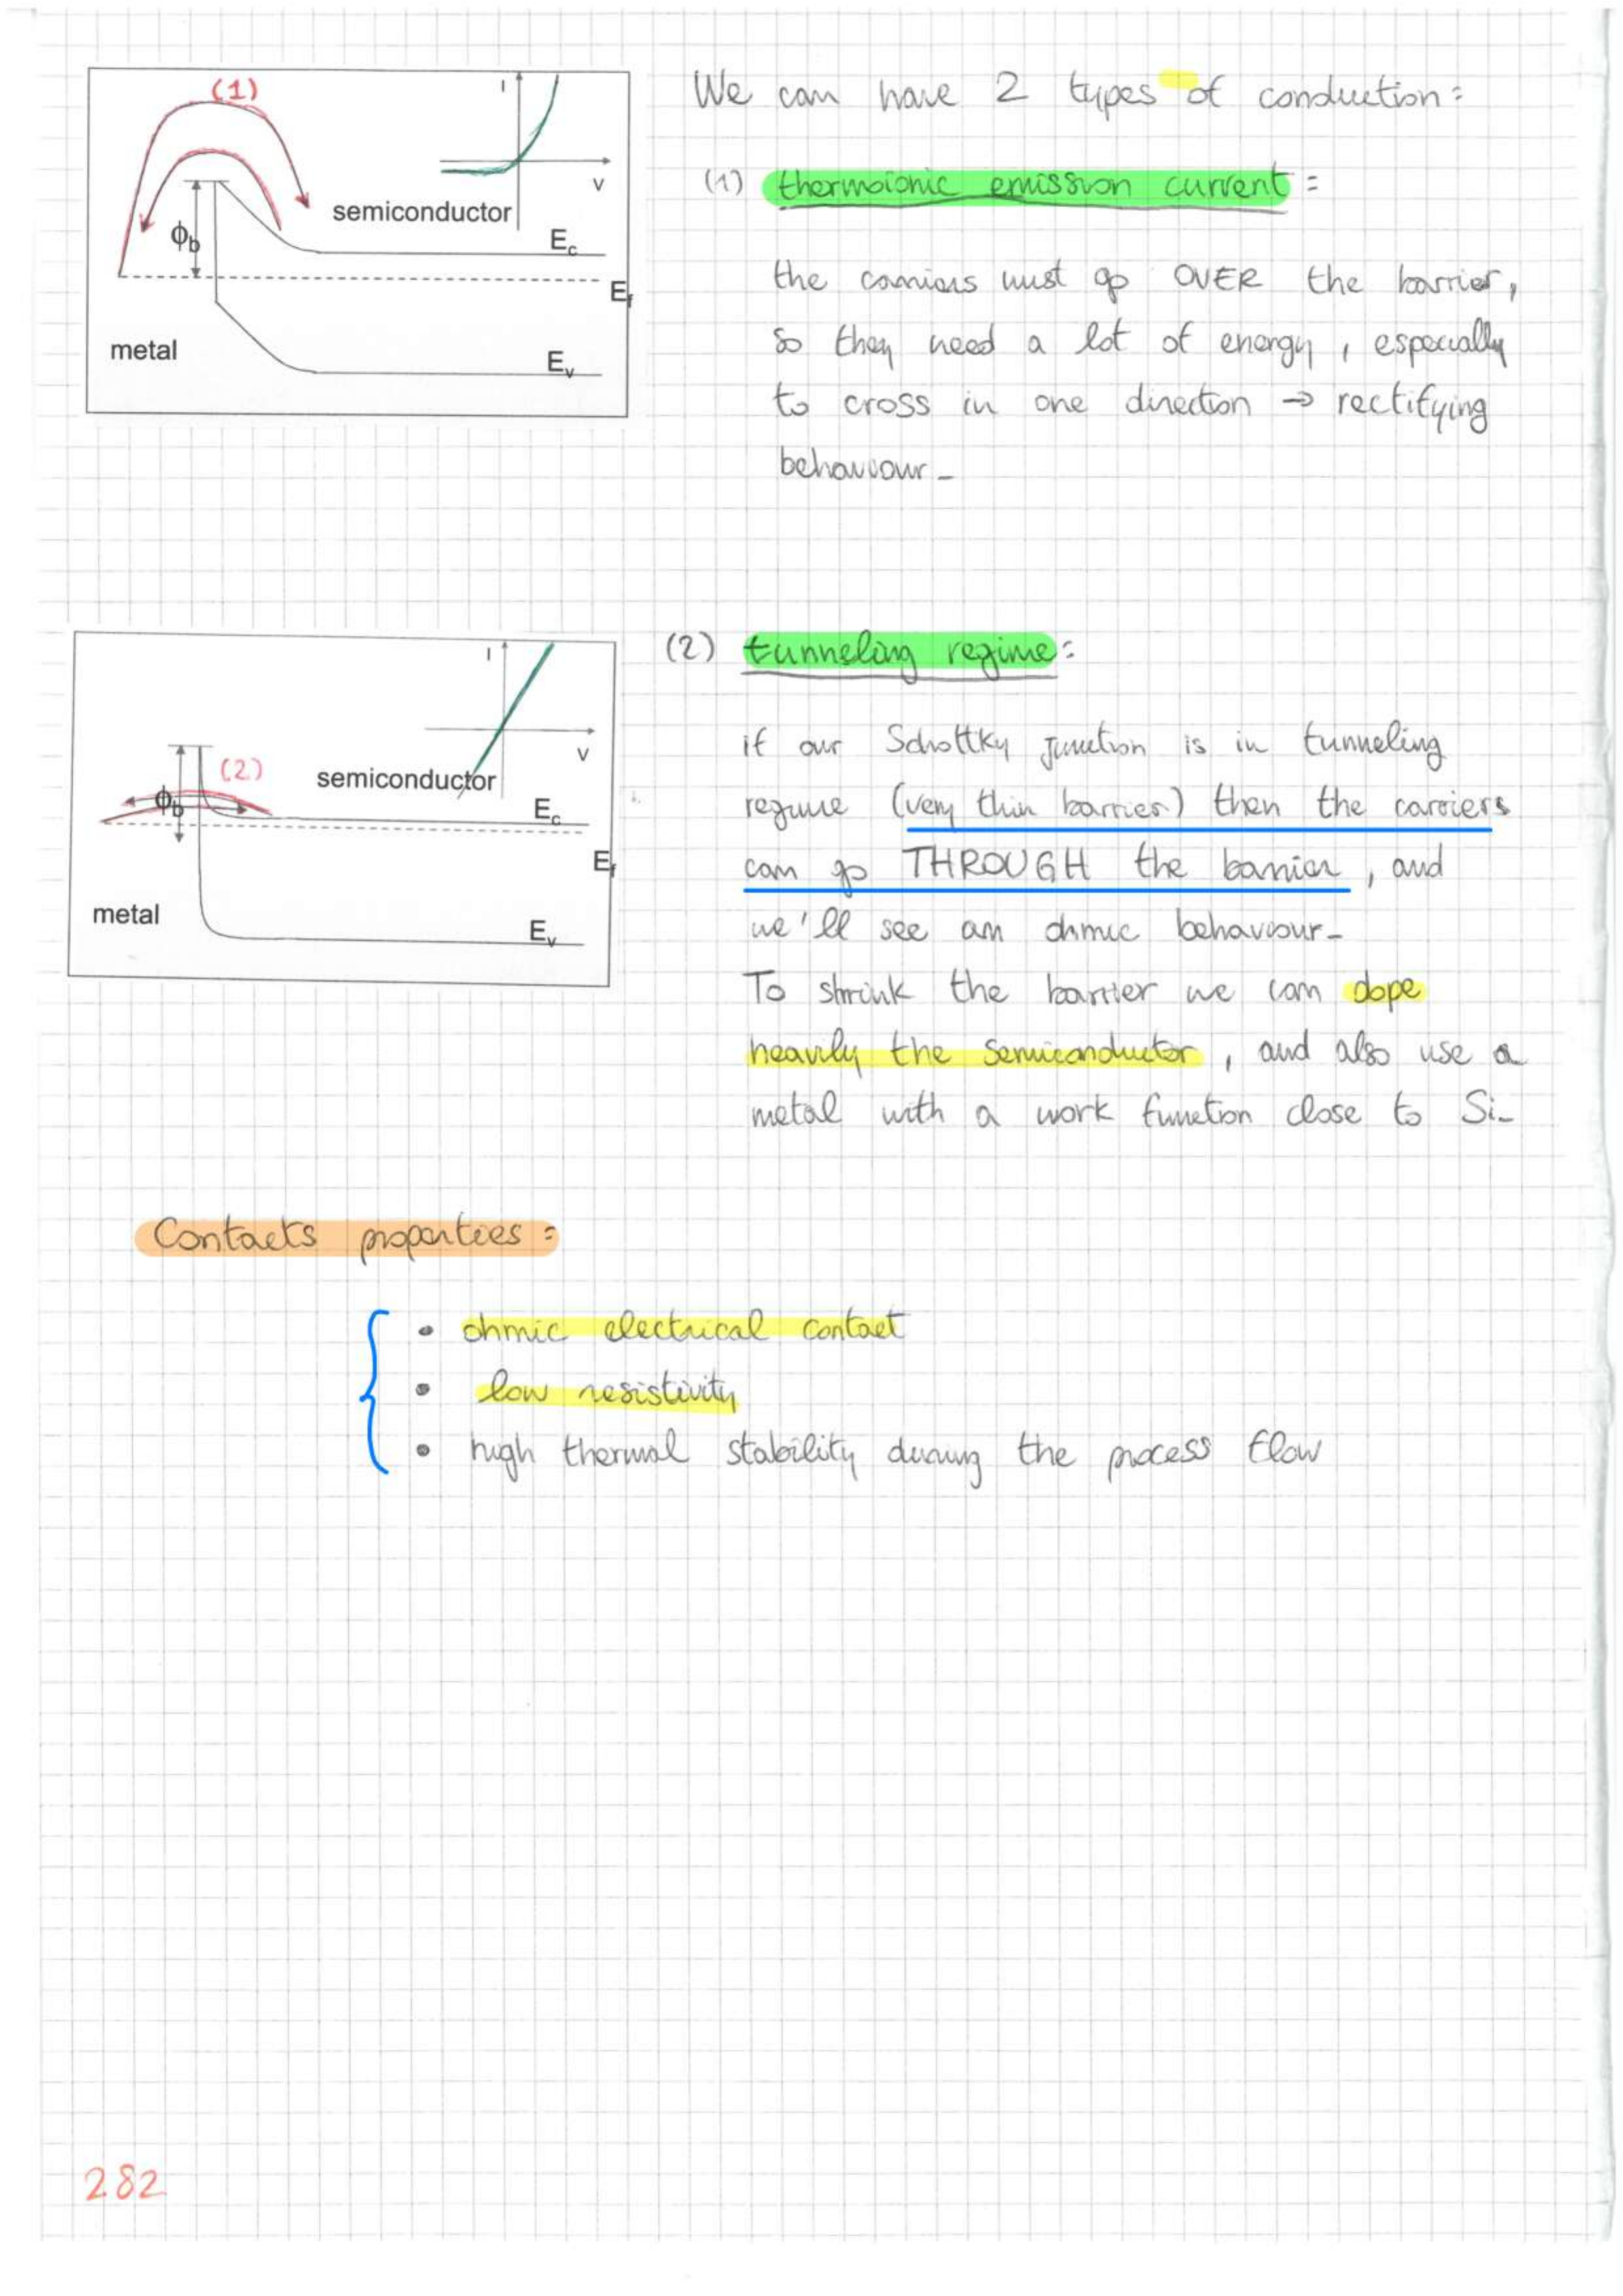 We can have 2 types of conduction:
(1) thermoionic emission current:
the carriers must go OVER the barrier,
so they need a lot of energy, especially
to cross in one direction → rectifying
behaviour-
(1)
I
V
semiconductor
ϕb
Ec
Ef
metal
Ev
(2) tunneling regime:
if our Schottky junction is in tunneling
regime (very thin barrier) then the carriers
can go THROUGH the barrier, and
we'll see an ohmic behaviour-
To shrink the barrier we can dope
heavily the semiconductor, and also use a
metal with a work function close to Si-
I
V
(2)
semiconductor
ϕb
Ec
Ef
metal
Ev
Contacts properties:
• ohmic electrical contact
• low resistivity
• high thermal stability during the process flow
282